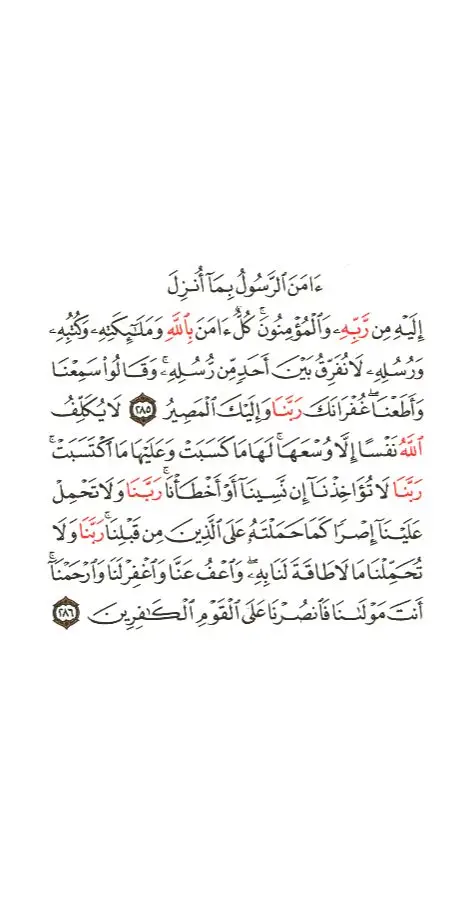 ءَامَنَ ٱلرَّسُولُ بِمَآ أُنزِلَ
إِلَيْهِ مِن رَّبِّهِۦ وَٱلْمُؤْمِنُونَۚ كُلٌّ ءَامَنَ بِٱللَّهِ وَمَلَٰٓئِكَتِهِۦ وَكُتُبِهِۦ
وَرُسُلِهِۦ لَا نُفَرِّقُ بَيْنَ أَحَدٍ مِّن رُّسُلِهِۦۚ وَقَالُوا۟ سَمِعْنَا
وَأَطَعْنَاۖ غُفْرَانَكَ رَبَّنَا وَإِلَيْكَ ٱلْمَصِيرُ ٢٨٥ لَا يُكَلِّفُ
ٱللَّهُ نَفْسًا إِلَّا وُسْعَهَاۚ لَهَا مَا كَسَبَتْ وَعَلَيْهَا مَا ٱكْتَسَبَتْۗ
رَبَّنَا لَا تُؤَاخِذْنَآ إِن نَّسِينَآ أَوْ أَخْطَأْنَاۚ رَبَّنَا وَلَا تَحْمِلْ
عَلَيْنَآ إِصْرًا كَمَا حَمَلْتَهُۥ عَلَى ٱلَّذِينَ مِن قَبْلِنَاۚ رَبَّنَا وَلَا
تُحَمِّلْنَا مَا لَا طَاقَةَ لَنَا بِهِۦۖ وَٱعْفُ عَنَّا وَٱغْفِرْ لَنَا وَٱرْحَمْنَآۚ
أَنتَ مَوْلَىٰنَا فَٱنصُرْنَا عَلَى ٱلْقَوْمِ ٱلْكَٰفِرِينَ ٢٨٦